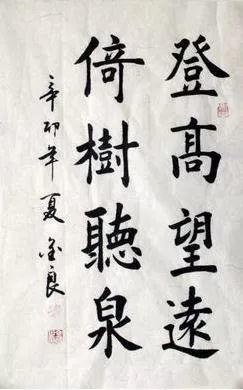 登高望遠
倚樹聽泉
辛卯年夏金良